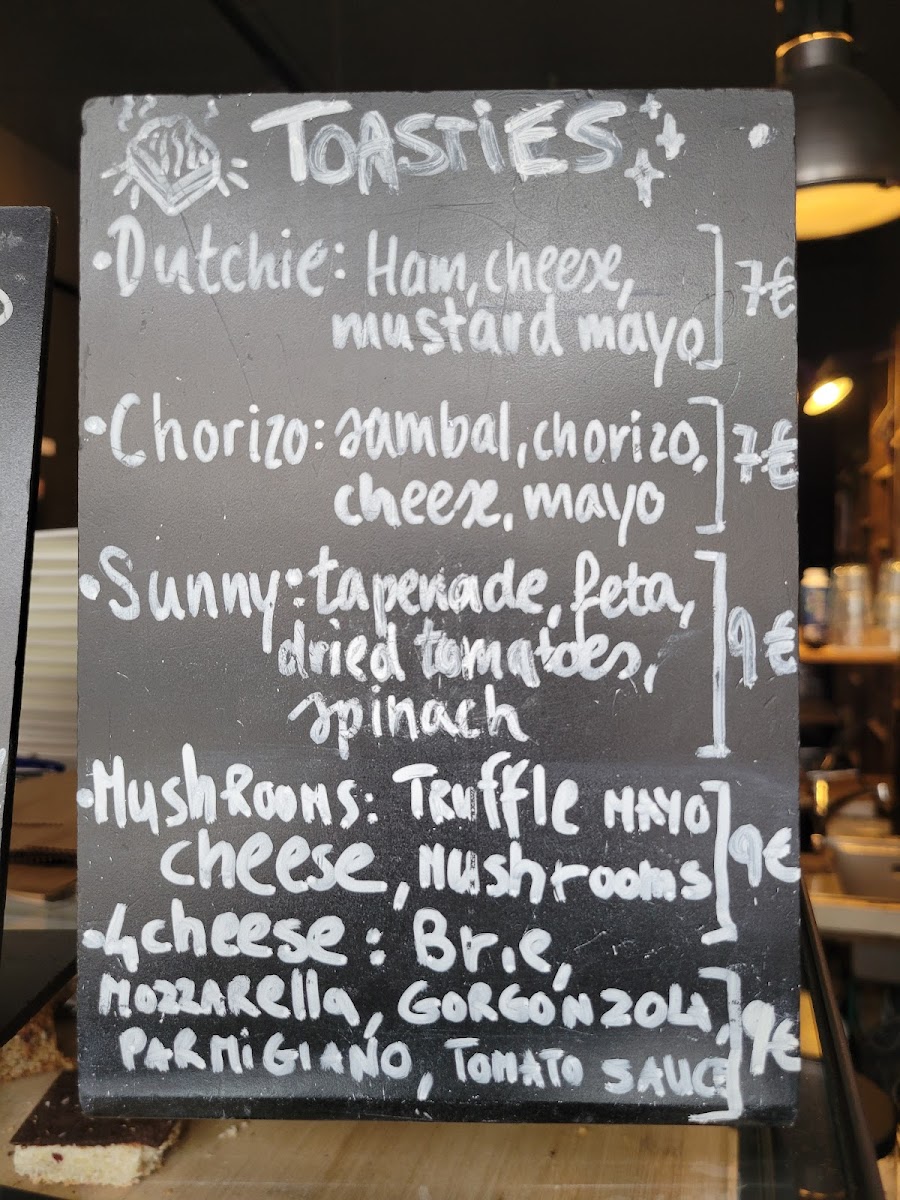 TOASTiES
• Dutchie: Ham, cheese,
mustard mayo
7€
• Chorizo: sambal, chorizo,
cheese, mayo
7€
• Sunny: tapenade, feta,
dried tomatoes,
spinach
9€
• MushRooMs: TRuffle MAYO
cheese, Mushrooms
9€
• 4cheese: Brie,
MOZZARella, GORGONZOLA,
PARMiGIANO, TOMATO SAUCE
9€